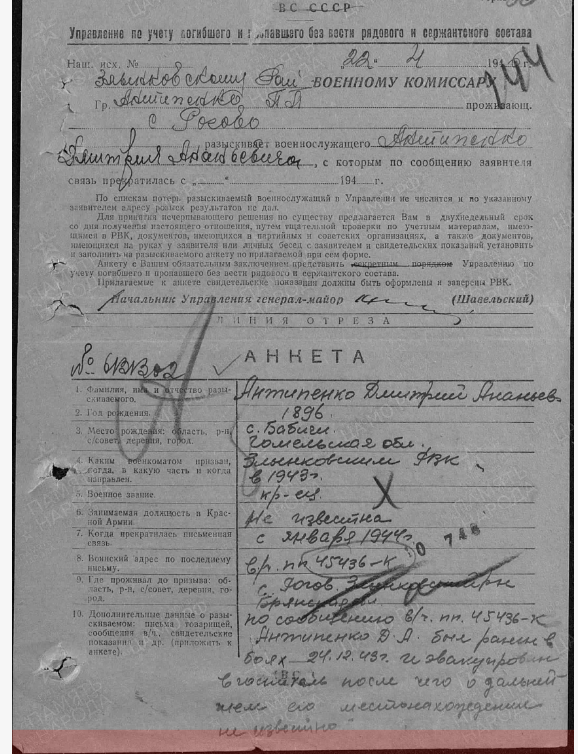 ВС СССР
Управление по учету погибшего и пропавшего без вести рядового и сержантского состава
Наш. исх. № 22. 4 194 г.
Злынковскому Рай ВОЕННОМУ КОМИССАРУ
144
Гр. Антипенко П П проживающ.
с Рогово
разыскивает военнослужащего Антипенко
Дмитрия Ананьевича, с которым по сообщению заявителя
связь прекратилась с „ “ 194 г.
По спискам потерь разыскиваемый военнослужащий в Управлении не числится и по указанному
заявителем адресу розыск результатов не дал.
Для принятия исчерпывающего решения по существу предлагается Вам в двухнедельный срок
со дня получения настоящего отношения, путем тщательной проверки по учетным материалам, имею-
щимся в РВК, документов, имеющихся в партийных и советских организациях, а также документов,
имеющихся на руках у заявителя или личных бесед с заявителем и свидетельских показаний установить
и заполнить на разыскиваемого анкету по прилагаемой при сем форме.
Анкету с Вашим обязательным заключением представить секретным порядком Управлению по
учету погибшего и пропавшего без вести рядового и сержантского состава.
Прилагаемые к анкете свидетельские показания должны быть оформлены и заверены РВК.
Начальник Управления генерал-майор (Шавельский)
ЛИНИЯ ОТРЕЗА
АНКЕТА
1. Фамилия, имя и отчество разы-
скиваемого.
Антипенко Дмитрий Ананьев
2. Год рождения.
1896
3. Место рождения: область, р-н,
с/совет, деревня, город.
с. Бабичи
Гомельская обл.
4. Каким военкоматом призван,
когда, в какую часть и когда
направлен.
Злынковским РВК
в 1943г.
5. Военное звание
кр-ец.
6. Занимаемая должность в Крас-
ной Армии.
Не известна
7. Когда прекратилась письменная
связь.
с января 1944г
8. Воинский адрес по последнему
письму.
в/р. пп 45436-К
9. Где проживал до призыва: об-
ласть, р-н, с/совет, деревня, го-
род.
с. Рогов. Злынковск. р-н
Брянская
10. Дополнительные данные о разы-
скиваемом: письма товарищей,
сообщения в/ч., свидетельские
показания и др. (приложить к
анкете).
По сообщению в/ч. пп. 45436-К
Антипенко Д.А. был ранен в
боях 24.12.43г. и эвакуирован
в госпиталь после чего о дальней-
шем его местонахождении
не известно